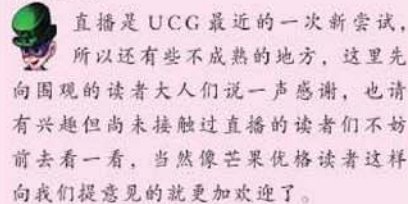 直播是 UCG 最近的一次新尝试，
所以还有些不成熟的地方，这里先
向围观的读者大人们说一声感谢，也请
有兴趣但尚未接触过直播的读者们不妨
前去看一看，当然像芒果优格读者这样
向我们提意见的就更加欢迎了。